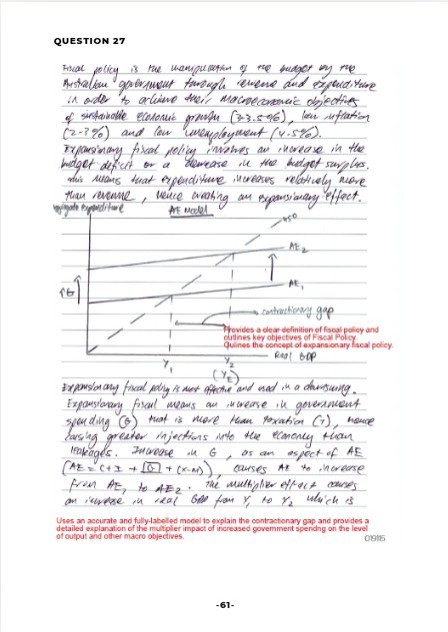 QUESTION 27
Fiscal policy is the manipulation of the budget by the
Australian government through revenue and expenditure
in order to achieve their macroeconomic objectives
of sustainable economic growth (3-3.5%), low inflation
(2-3%) and low unemployment (4.5%).
Expansionary fiscal policy involves an increase in the
budget deficit or a decrease in the budget surplus.
This means that expenditure increases relatively more
than revenue, hence creating an expansionary effect.
Aggregate expenditure AE Model
45°
AE2
↑G
AE1
contractionary gap
Provides a clear definition of fiscal policy and
outlines key objectives of Fiscal Policy.
Oulines the concept of expansionary fiscal policy.
Real GDP
Y1 Y2
(YF)
Expansionary fiscal policy is most effective and used in a
Expansionary fiscal means an increase in government
spending (G) that is more than taxation (T), hence
causing greater injections into the economy than
leakages. Increase in G, as an aspect of AE
(AE = C+I+G+(X-M)), causes AE to increase
from AE1 to AE2. The multiplier effect causes
an increase in real GDP from Y1 to Y2 which is
Uses an accurate and fully-labelled model to explain the contractionary gap and provides a
detailed explanation of the multiplier impact of increased government spendng on the level
of output and other macro objectives.
019115
-61-